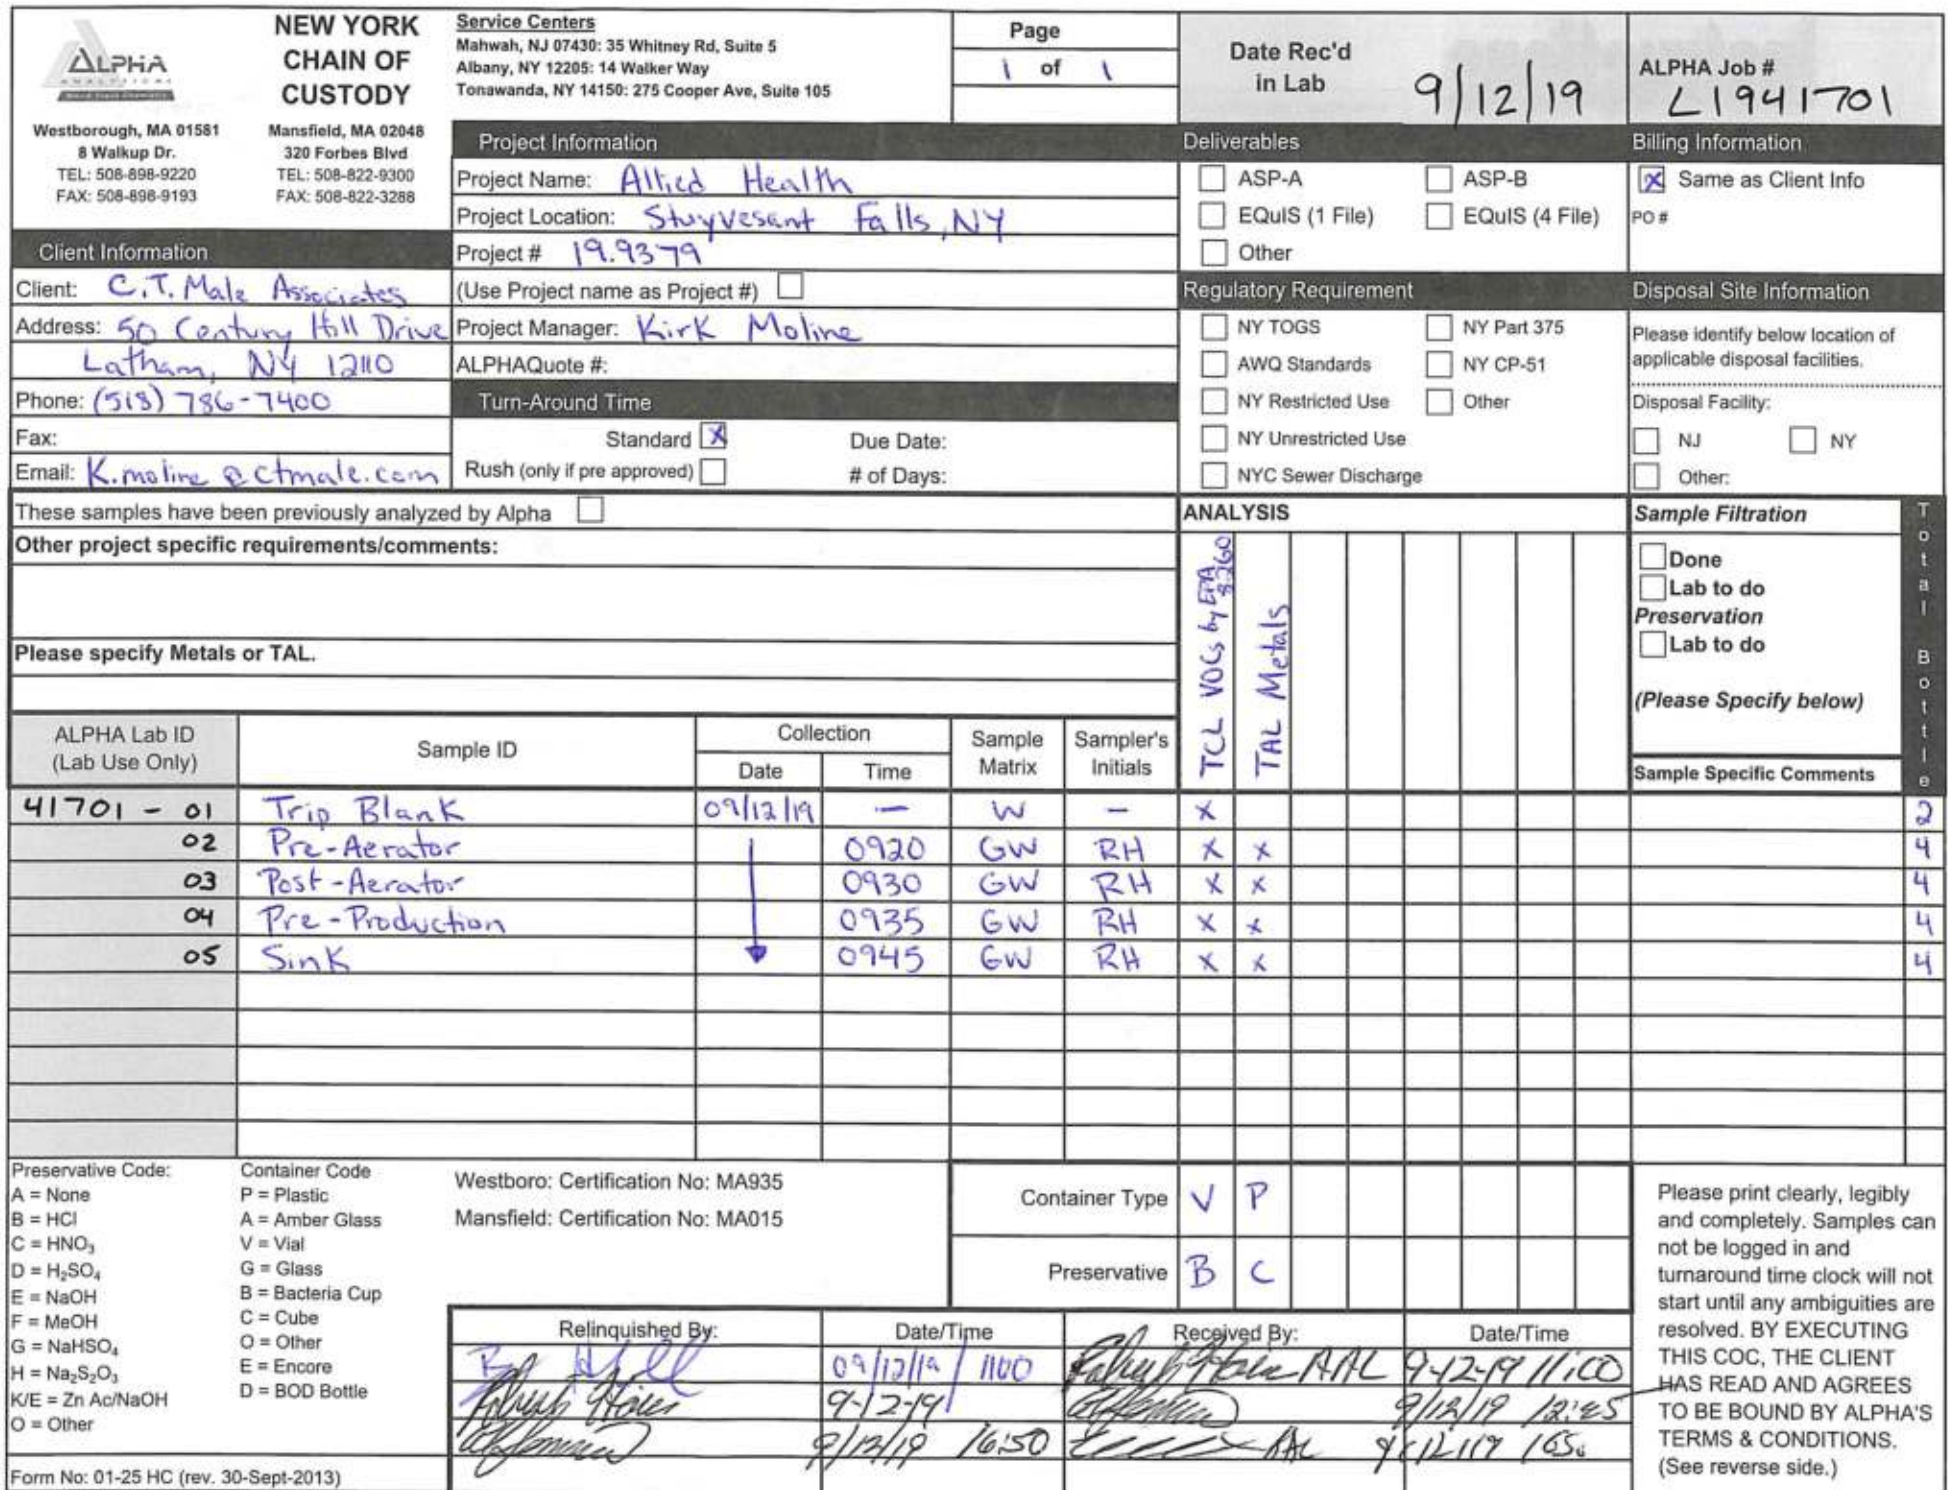 ALPHA
ANALYTICAL
NEW YORK
CHAIN OF
CUSTODY
Westborough, MA 01581
8 Walkup Dr.
TEL: 508-898-9220
FAX: 508-898-9193
Mansfield, MA 02048
320 Forbes Blvd
TEL: 508-822-9300
FAX: 508-822-3288
Service Centers
Mahwah, NJ 07430: 35 Whitney Rd, Suite 5
Albany, NY 12205: 14 Walker Way
Tonawanda, NY 14150: 275 Cooper Ave, Suite 105
Page
1 of 1
Date Rec'd
in Lab
9/12/19
ALPHA Job #
L1941701
Client Information
Client: C.T. Male Associates
Address: 50 Century Hill Drive
Latham, NY 12110
Phone: (518) 786-7400
Fax:
Email: K.moline @ctmale.com
Project Information
Project Name: Allied Health
Project Location: Stuyvesant Falls, NY
Project # 19.9379
(Use Project name as Project #)
Project Manager: Kirk Moline
ALPHAQuote #:
Turn-Around Time
Standard X Due Date:
Rush (only if pre approved) # of Days:
Deliverables
ASP-A ASP-B
EQuIS (1 File) EQuIS (4 File)
Other
Regulatory Requirement
NY TOGS NY Part 375
AWQ Standards NY CP-51
NY Restricted Use Other
NY Unrestricted Use
NYC Sewer Discharge
Billing Information
X Same as Client Info
PO #
Disposal Site Information
Please identify below location of
applicable disposal facilities.
Disposal Facility:
NJ NY
Other:
These samples have been previously analyzed by Alpha
Other project specific requirements/comments:
Please specify Metals or TAL.
ANALYSIS
TCL VOCs by EPA 8260
TAL Metals
Sample Filtration
Done
Lab to do
Preservation
Lab to do
(Please Specify below)
Total Bottle
ALPHA Lab ID
(Lab Use Only)
Sample ID
Collection
Date Time
Sample
Matrix
Sampler's
Initials
Sample Specific Comments
41701 - 01 Trip Blank 09/12/19 — W — X 2
02 Pre-Aerator 0920 GW RH X X 4
03 Post-Aerator 0930 GW RH X X 4
04 Pre-Production 0935 GW RH X X 4
05 Sink 0945 GW RH X X 4
Preservative Code:
A = None
B = HCl
C = HNO₃
D = H₂SO₄
E = NaOH
F = MeOH
G = NaHSO₄
H = Na₂S₂O₃
K/E = Zn Ac/NaOH
O = Other
Container Code
P = Plastic
A = Amber Glass
V = Vial
G = Glass
B = Bacteria Cup
C = Cube
O = Other
E = Encore
D = BOD Bottle
Westboro: Certification No: MA935
Mansfield: Certification No: MA015
Container Type V P
Preservative B C
Relinquished By: Date/Time Received By: Date/Time
09/12/19 / 1100 AAL 9-12-19 11:00
9-12-19 9/12/19
9/12/19 16:50 AAL
Please print clearly, legibly
and completely. Samples can
not be logged in and
turnaround time clock will not
start until any ambiguities are
resolved. BY EXECUTING
THIS COC, THE CLIENT
HAS READ AND AGREES
TO BE BOUND BY ALPHA'S
TERMS & CONDITIONS.
(See reverse side.)
Form No: 01-25 HC (rev. 30-Sept-2013)